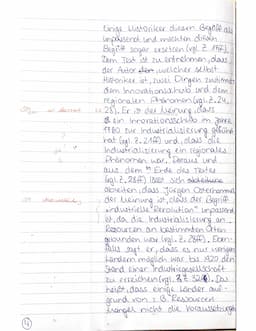 einige Historiker diesen Begriff als
unpassend und möchten diesen
Begriff sogar ersetzen (vgl. Z. 1ff).
Dem Text ist zu entnehmen, dass
der Autor, welcher selbst
Historiker ist, zwei Dingen zustimmt
dem Innovationsschub und dem
regionalen Phänomen (vgl. Z. 24,
28). Er ist der Meinung, dass
ein Innovationsschub im Jahre
1780 zur Industrialisierung geführt
hat (vgl. Z. 21ff) und, dass die
Industrialisierung ein regionales
Phänomen war. Daraus und
aus dem Ende des Textes
(vgl. Z. 28ff) lässt sich
arbeiten, dass Jürgen Osterhammel
der Meinung ist, dass der Begriff
"industrielle Revolution" unpassend
ist, da die Industrialisierung an
Ressourcen an bestimmten Orten
gebunden war (vgl. Z. 28ff). Eben-
falls sagt er, dass es nur wenigen
Ländern möglich war bis 1920 den
Stand einer Industriegesellschaft
zu erreichen (vgl. Z. 32f). Das
heißt, dass einige Länder auf-
grund von z. B. Ressourcen-
mangel nicht die Voraussetzungen